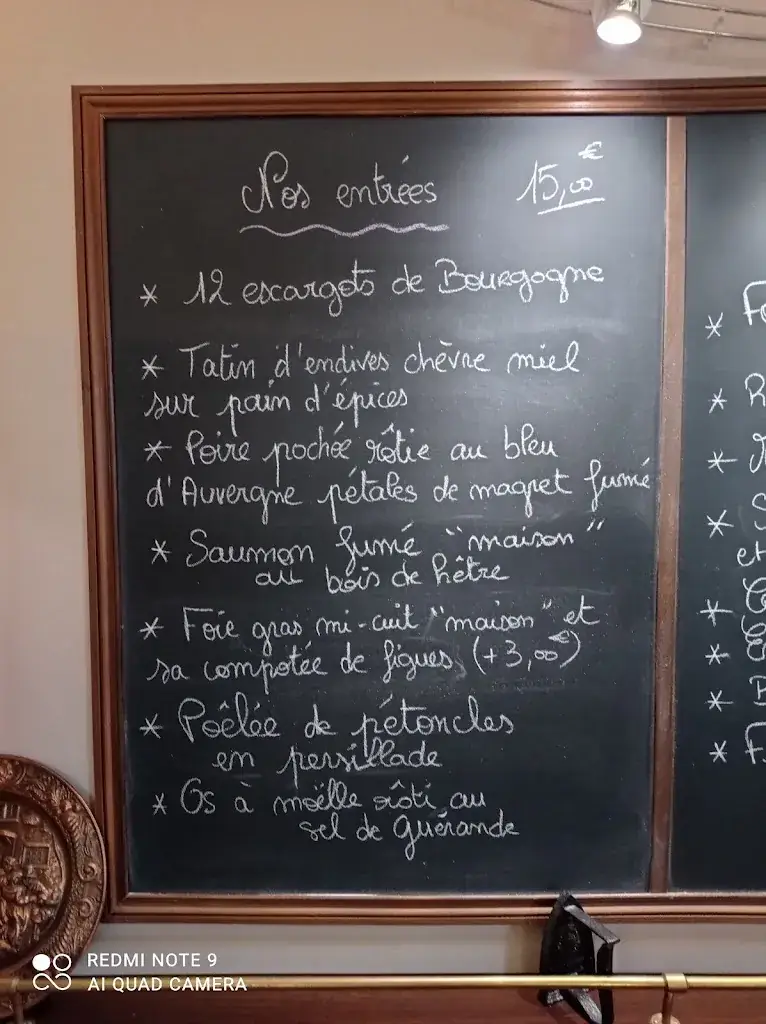 Nos entrées 15,00€
* 12 escargots de Bourgogne
* Tatin d'endives chèvre miel
sur pain d'épices
* Poire pochée rôtie au bleu
d'Auvergne pétales de magret fumé
* Saumon fumé "maison"
au bois de hêtre
* Foie gras mi-cuit "maison" et
sa compotée de figues (+3,00€)
* Poêlée de pétoncles
en persillade
* Os à moëlle rôti au
sel de Guérande
et
REDMI NOTE 9
AI QUAD CAMERA